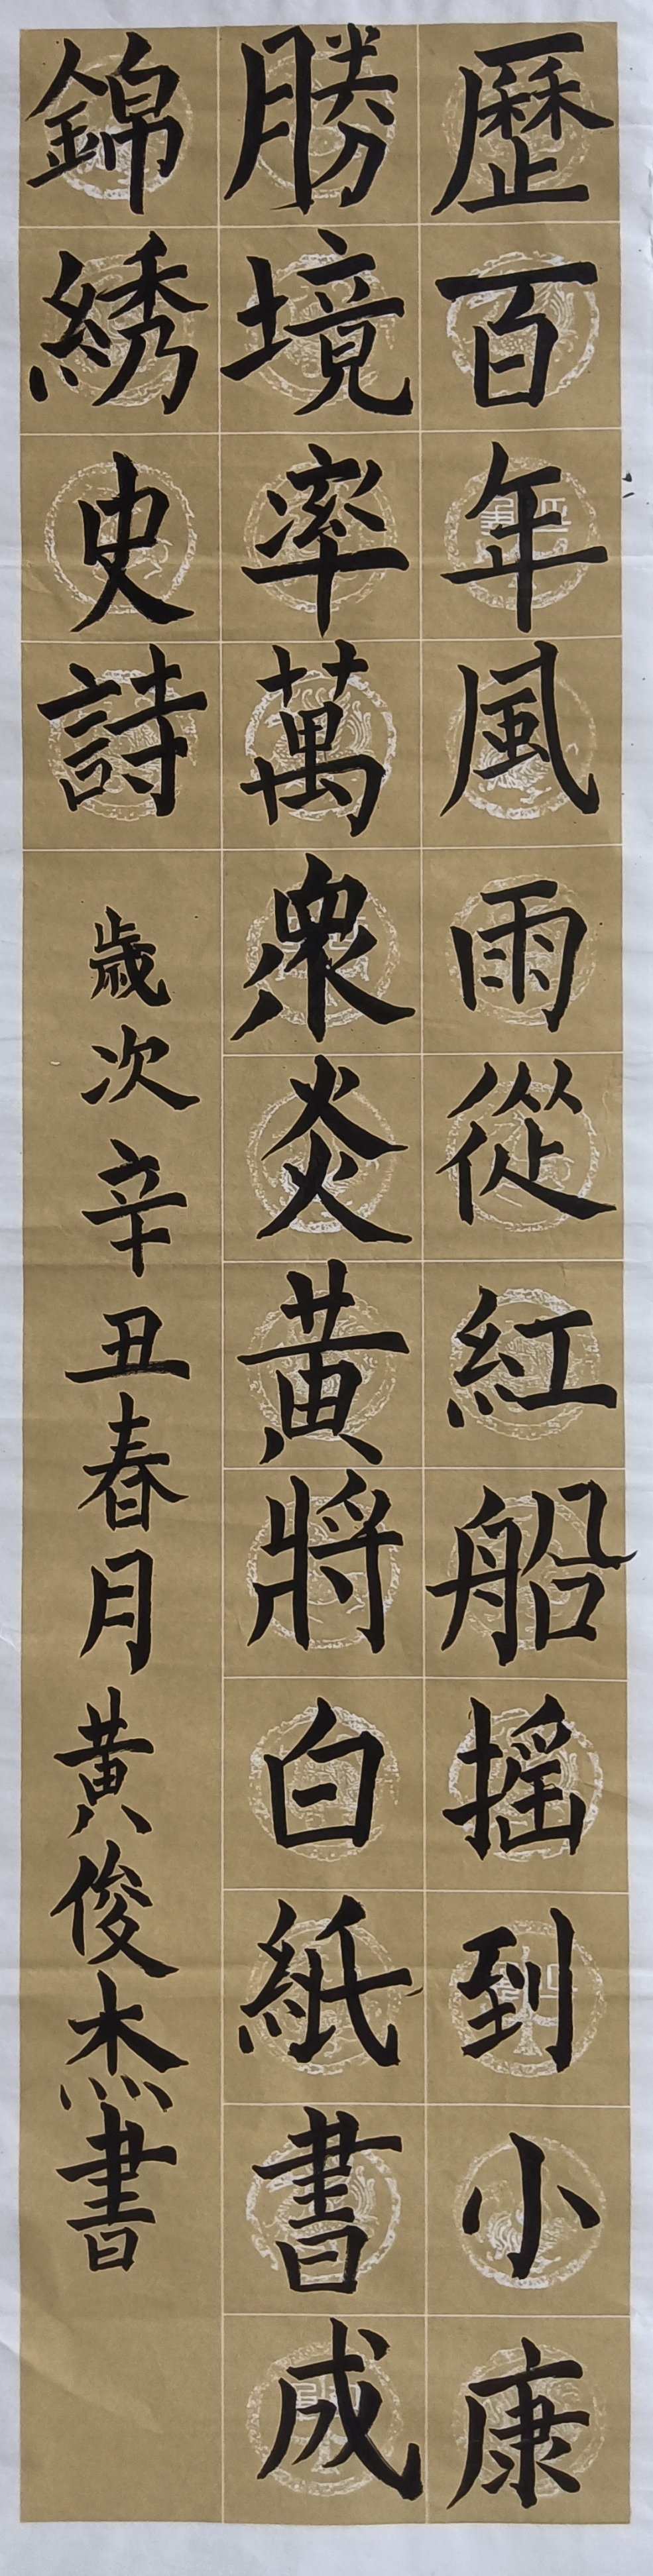 歷百年風雨從紅船摇到小康
勝境率萬衆炎黃將白紙書成
錦綉史詩
歲次辛丑春月黄俊杰書